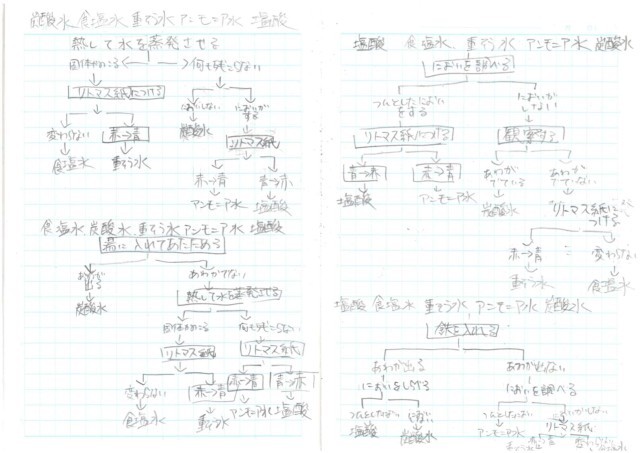 炭酸水 食塩水 重そう水 アンモニア水 塩酸
熱して水を蒸発させる
固体がのこる
何も残こらない
リトマス紙につける
変わらない
赤→青
食塩水
重そう水
においしない
においがする
炭酸水
リトマス紙
赤→青
青→赤
アンモニア水
塩酸
食塩水 炭酸水 重そう水 アンモニア水 塩酸
湯に入れてあたためる
あわが出る
あわがでない
炭酸水
熱して水を蒸発させる
固体がのこる
何も残こらない
リトマス紙
リトマス紙
変わらない
赤→青
赤→青
青→赤
食塩水
重そう水
アンモニア水
塩酸
塩酸 食塩水 重そう水 アンモニア水 炭酸水
においを調べる
つんとしたにおいをする
においがしない
リトマス紙につける
観察する
青→赤
赤→青
あわがでている
あわがでていない
塩酸
アンモニア水
炭酸水
リトマス紙につける
赤→青
変わらない
重そう水
食塩水
塩酸 食塩水 重そう水 アンモニア水 炭酸水
鉄を入れる
あわが出る
あわが出ない
においを調べる
塩酸
炭酸水
アンモニア水
リトマス紙
赤→青
変わらない
食塩水